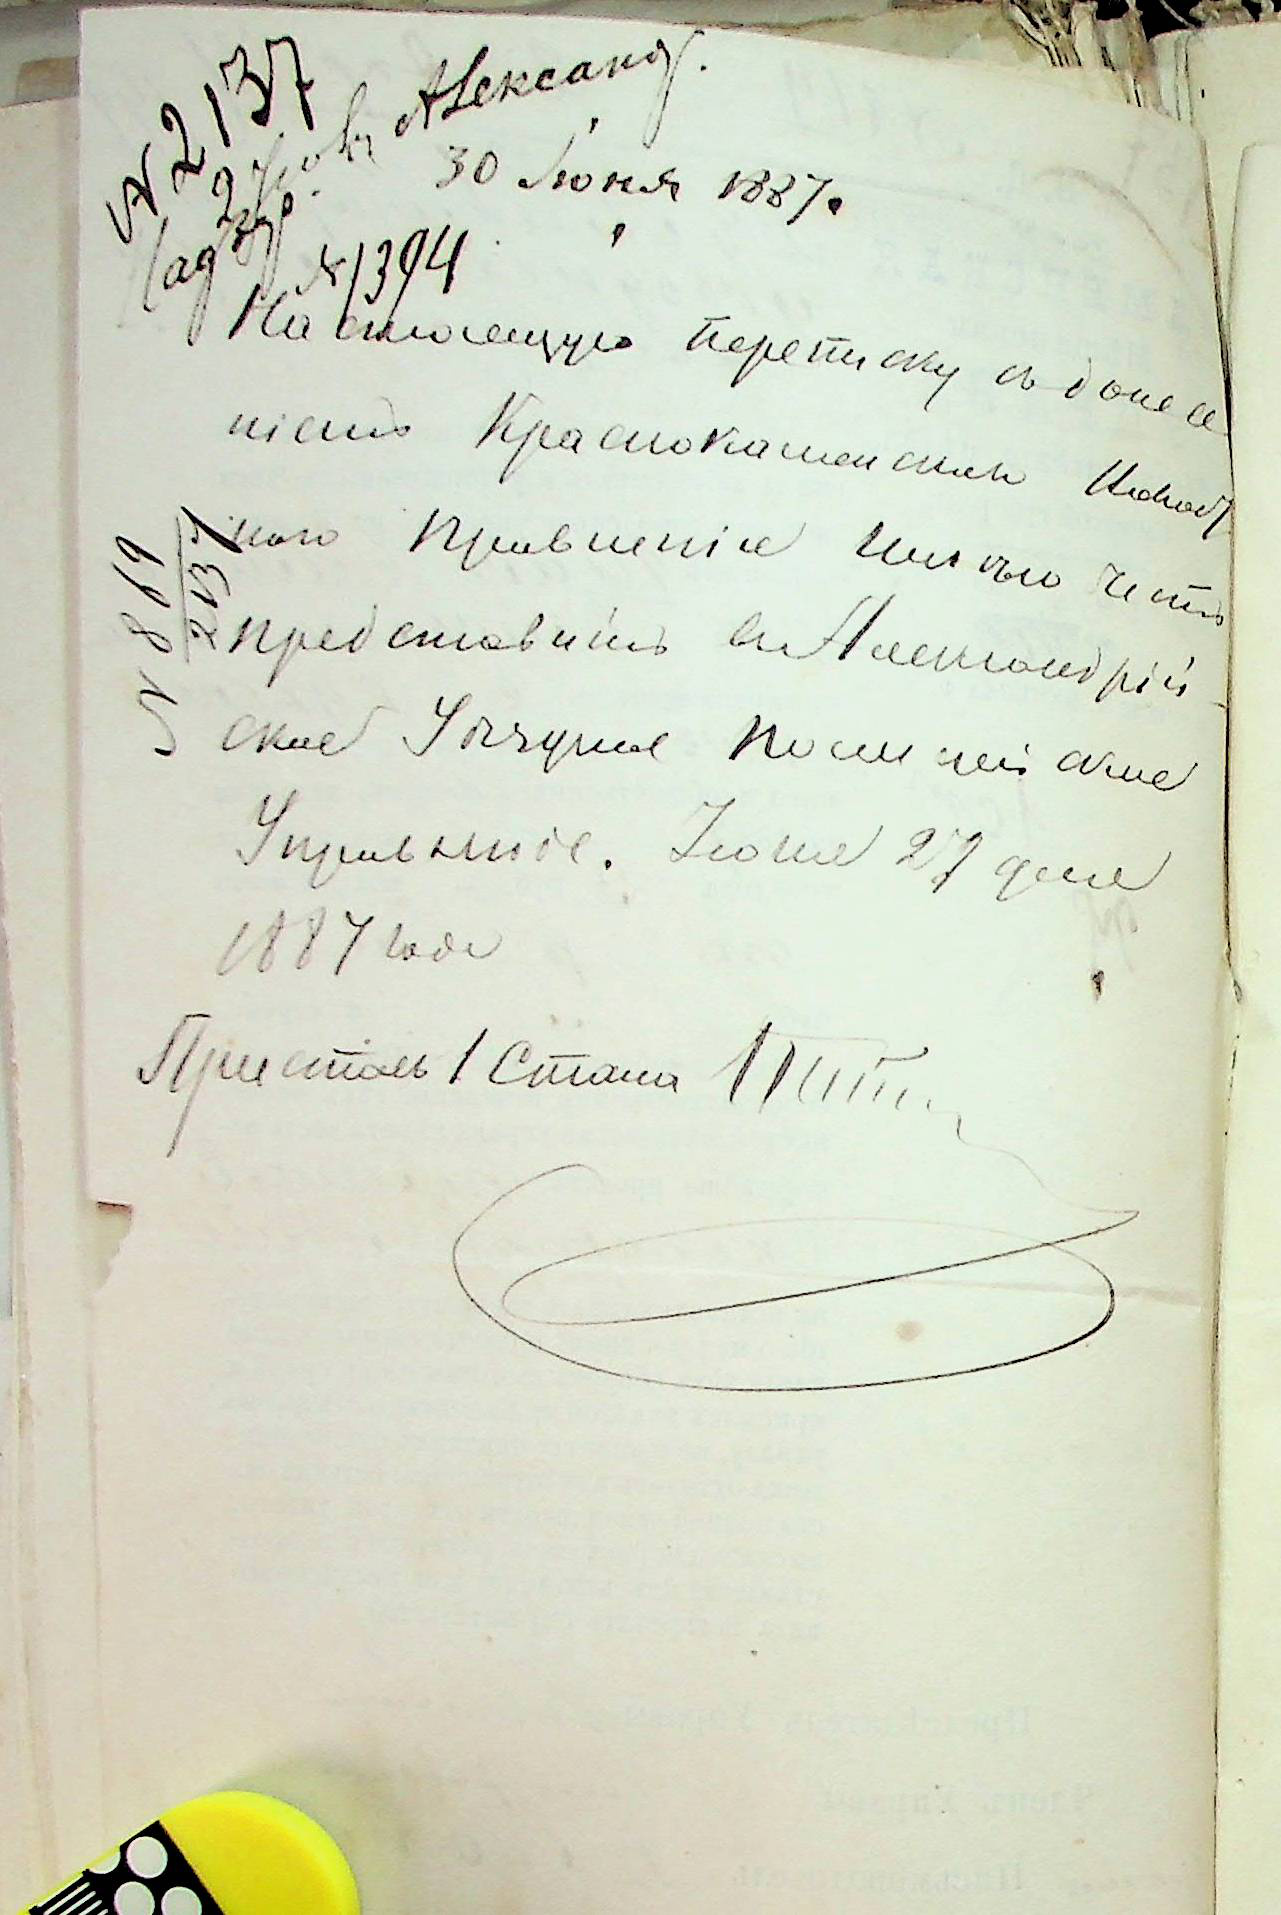 № 2137
2 Александ.
30 Июня 1887.
Надзир.
№ 1394
Настоящую переписку съ донесе
ніемъ Краснокаменскаго Волост
ного Правленія имѣю честь
представить въ Александрій-
ское Уѣздное Полицейское
Управленіе. Іюня 27 дня
1887 года
Приставъ 1 Стана
№ 869
2137